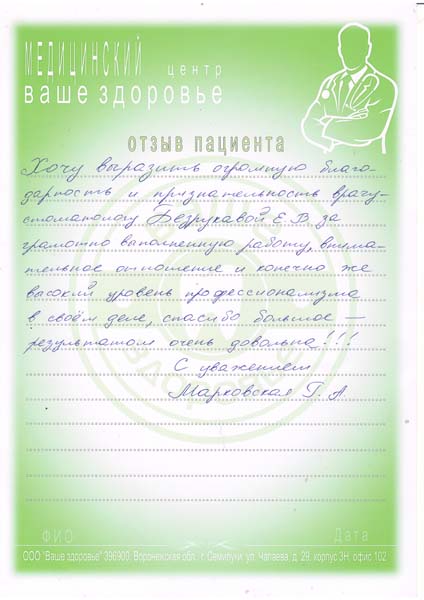 МЕДИЦИНСКИЙ
центр
ваше здоровье
отзыв пациента
Хочу выразить огромную благо-
дарность и признательность врачу-
стоматологу Безрукавой Е. В. за
грамотно выполненную работу, внима-
тельное отношение и конечно же
высокий уровень профессионализма
в своём деле, спасибо большое —
результатом очень довольна!!!
С уважением
Марковская Г. А.
ФИО
Дата
ООО "Ваше здоровье" 396900, Воронежская обл., г. Семилуки, ул. Чапаева, д. 29, корпус 3Н, офис 102